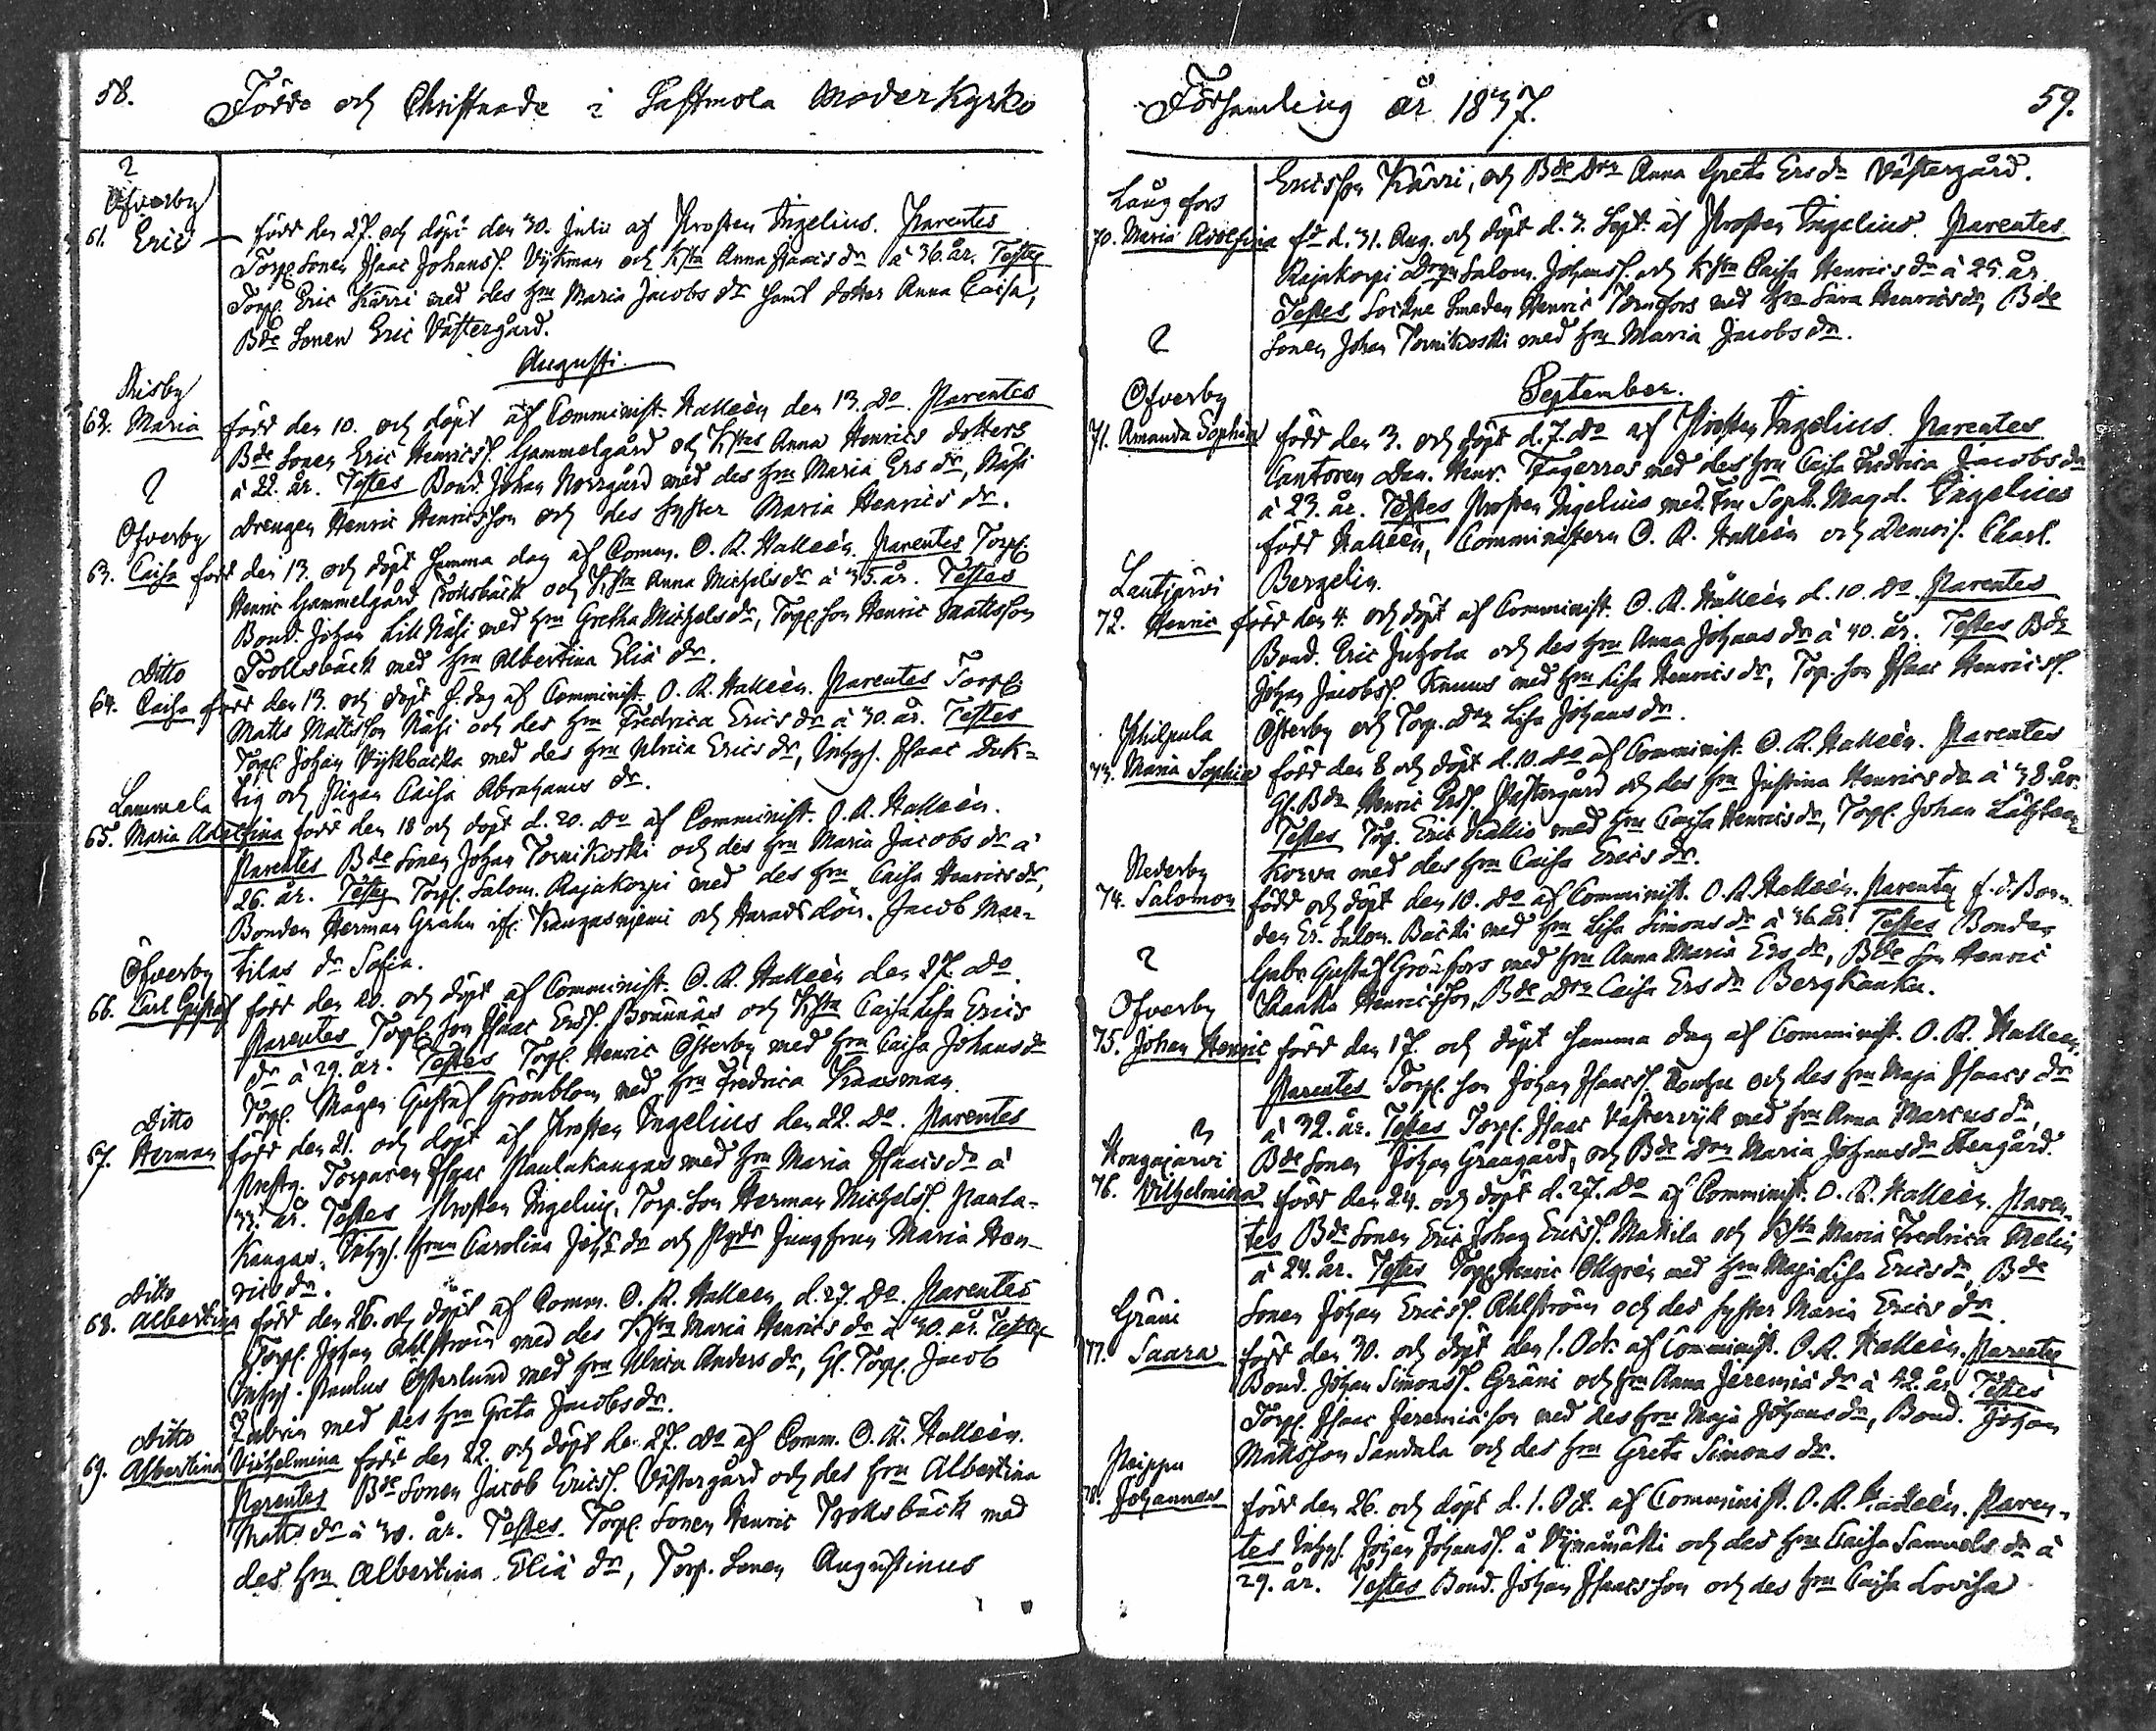 58.
Födde och Christnade i Lastmola Moderkyrko
Öfverby
61. Eric — född den 27. och döpt den 30. Julii af Prosten Ingelius. Parentes
Torp. Sonen Isaac Johanss. Vykman och Hsta Anna Isaacs dr à 36. år. Testes
Torp. Eric Kärri med des hru Maria Jacobs dr samt dotter Anna Caisa,
Bde Sonen Eric Västergård.
Augusti.
Risby
62. Maria född den 10. och döpt af Comminist. Halleèn den 13. do. Parentes
Bde Sonen Eric Henricss. Gammelgård och Hstes Anna Henrics dotters
à 22. år. Testes Bond. Johan Norrgård med des hru Maria Ers dr, Näsi
drengen Henric Henricsson och des syster Maria Henrics dr.
Öfverby
63. Caisa född den 13. och döpt samma dag af Comm. O. R. Halleèn. Parentes Torp.
Henric Gammelgård Trollsbäck och Hsta Anna Michels dr à 35. år. Testes
Bond. Johan Lill Näsi med hru Gretha Michelsdr, Torp. son Henric Mattsson
Trollsbäck med hru Albertina Eliä dr.
Ditto
64. Caisa född den 13. och döpt s. dag af Comminist. O. R. Halleèn. Parentes Torp.
Matts Mattsson Näsi och des hru Fredrica Erics dr à 30. år. Testes
Torp. Johan Vykbacka med des hru Ulrica Erics dr, Inhys. Isaac Duk-
tig och Pigan Caisa Abrahams dr.
Lammela
65. Maria Adolfina född den 18 och döpt d. 20. do af Comminist. O. R. Halleèn.
Parentes Bde Sonen Johan Tornikoski och des hru Maria Jacobs dr à
26. år. Testes Torp. Salom. Rajakorpi med des hru Caisa Henrics dr,
Bonden Herman Grahn ifr. Kangasniemi och Jacob Mar-
tilas dr Sofia.
Öfverby
66. Carl Gustaf född den 20. och döpt af Comminist. O. R. Halleèn den 27. do
Parentes Torp. son Isaac Erss. Brännäs och Hsta Caisa Lisa Erics
dr à 29. år. Testes Torp. Henric Österby med hru Caisa Johans dr
Torp. Mågen Gustaf Grönblom med hru Fredrica Kaasman.
Ditto
67. Herman född den 21. och döpt af Prosten Ingelius den 22. do. Parentes
Prestg. Torparen Isaac Paulakangas med hru Maria Isaacs dr à
33. år. Testes Prosten Ingelius, Torp. Son Herman Michelss. Paula-
kangas, Inhys. hrun Carolina Johs dr och Jungfrun Maria Hen-
rics dr.
Ditto
68. Albertina född den 26. och döpt af Comm. O. R. Halleèn. d. 27. do. Parentes
Torp. Johan Ahlström med des Hsta Maria Henrics dr à 30. år. Testes
Inhys. Paulus Österlund med hru Ulrica Anders dr, Gl. Torp. Jacob
med des hru Greta Jacobs dr.
Ditto
69. Albertina Vilhelmina född den 22. och döpt den 27. do af Comm. O. R. Halleèn.
Parentes Bde Sonen Jacob Ericss. Västergård och des hru Albertina
Matts dr à 30. år. Testes. Torp. Sonen Henric Trollsbäck med
des hru Albertina Eliä dr, Torp. Sonen Augustinus
Församling år 1837.
59.
Ericsson Kärri, och Bde dr Anna Greta Ers dr Västergård.
Långfors
70. Maria Adolfina fd d. 31. Aug. och döpt d. 3. Sept. af Prosten Ingelius. Parentes
Rajakorpi Salom. Johanss. och Hstru Caisa Henrics dr à 25. år.
Testes Sockne Smeden Henric Tornfors med hru Sara Henricsdr, Bde
Sonen Johan Tornikoski med hru Maria Jacobs dr.
September.
Öfverby
71. Amanda Sophia född den 3. och döpt d. 7. do af Prosten Ingelius. Parentes
Cantoren Dan. Henr. Fagerroos med des hru Caisa Fredrica Jacobs dr
à 23. år. Testes Prosten Ingelius med Fru Soph. Magd. Ingelius
född Halleèn, Comministern O. R. Halleèn och Demois. Charl.
Bergelin.
Lautjärvi
72. Henric född den 4. och döpt af Comminist. O. R. Halleèn d. 10. do. Parentes
Bond. Eric Juhola och des hru Anna Johans dr à 40. år. Testes Bde
Johan Jacobss. Knuus med hru Lisa Henrics dr, Torp. son Isaac Henricss.
Österby och Torp. dr Lisa Johans dr.
Philpula
73. Maria Sophia född den 8 och döpt d. 10. do af Comminist. O. R. Halleèn. Parentes
Gl. Bde Henric Erss. Västergård och des hru Justina Henrics dr à 38. år.
Testes Torp. Eric Kallio med hru Caisa Henricsdr, Torp. Johan
Korva med des hru Caisa Erics dr.
Nederby
74. Salomon född och döpt den 10. do af Comminist. O. R. Halleèn. Parentes f. d. Bon-
den Er. Salom. Bäcki med hru Lisa Simons dr à 36. år. Testes Bonden
Gabr. Gustaf Grönfors med hru Anna Maria Ers dr, Bde Son Henric
Kaaka Henricsson, Bde dr Caisa Ers dr Bergkaaka.
Öfverby
75. Johan Henric född den 17. och döpt samma dag af Comminist. O. R. Halleèn.
Parentes Torp. son Johan Isaacss. och des hru Maja Isaacs dr
à 32. år. Testes Torp. Isaac Västervyk med hru Anna Marcus dr,
Bde Sonen Johan Graugård, och Bde dr Maria Johansdr Stengård.
Hongajärvi
76. Vilhelmina född den 24. och döpt d. 27. do af Comminist. O. R. Halleèn. Paren-
tes Bde Sonen Eric Johan Ericss. Mattila och Hsta Maria Fredrica Melin
à 24. år. Testes Torp. Henric Ollgrèn med hru Maja Lisa Ericsdr, Bde
Sonen Johan Ericss. Ahlström och des syster Maria Erics dr.
Gräni
77. Saara född den 30. och döpt den 1. Octr. af Comminist. O. R. Halleèn. Parentes
Bond. Johan Simonss. Gräni och hru Anna Jeremiä dr à 42. år. Testes
Torp. Isaac Jeremiasson med des hru Maja Johans dr, Bond. Johan
Mattsson Sandala och des hru Greta Simons dr.
Peippu
78. Johannes född den 26. och döpt d. 1. Oct. af Comminist. O. R. Halleèn. Paren-
tes Inhys. Johan Johanss. å Vynämäki och des hru Caisa Samuels dr à
29. år. Testes Bond. Johan Isaacsson och des hru Caisa Lovisa